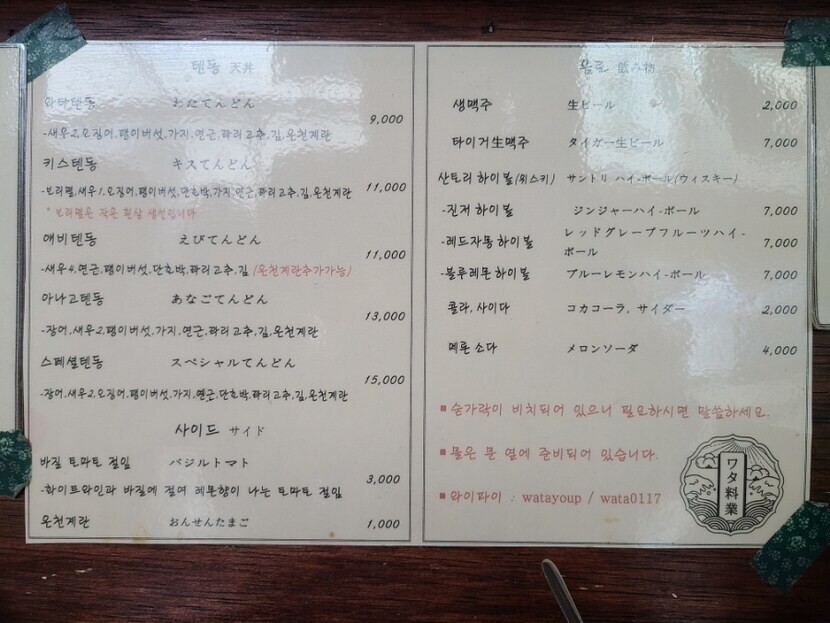 텐동 天丼
와타텐동 わたてんどん 9,000
-새우2,오징어,팽이버섯,가지,연근,꽈리고추,김,온천계란
키스텐동 キスてんどん
-보리멸,새우1,오징어,팽이버섯,단호박,가지,연근,꽈리고추,김,온천계란 11,000
* 보리멸은 작은 흰살 생선입니다
에비텐동 えびてんどん 11,000
-새우4,연근,팽이버섯,단호박,꽈리고추,김 (온천계란추가가능)
아나고텐동 あなごてんどん 13,000
-장어,새우2,팽이버섯,가지,연근,꽈리고추,김,온천계란
스페셜텐동 スペシャルてんどん 15,000
-장어,새우2,오징어,팽이버섯,가지,연근,단호박,꽈리고추,김,온천계란
사이드 サイド
바질 토마토 절임 バジルトマト 3,000
-화이트와인과 바질에 절여 레몬향이 나는 토마토 절임
온천계란 おんせんたまご 1,000
음료 飲み物
생맥주 生ビール 2,000
타이거生맥주 タイガー生ビール 7,000
산토리 하이볼(위스키) サントリ ハイ-ボール(ウィスキー)
-진저 하이볼 ジンジャーハイ-ボール 7,000
-레드자몽 하이볼 レッドグレープフルーツハイ-
ボール 7,000
-블루레몬 하이볼 ブルーレモンハイ-ボール 7,000
콜라, 사이다 コカコーラ, サイダー 2,000
메론 소다 メロンソーダ 4,000
■ 숟가락이 비치되어 있으니 필요하시면 말씀하세요.
■ 물은 문 옆에 준비되어 있습니다.
■ 와이파이 : watayoup / wata0117
ワタ料業